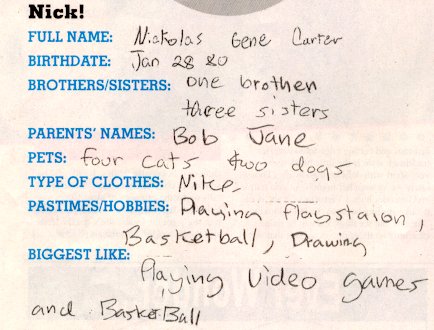 Nick!
FULL NAME: Nickolas Gene Carter
BIRTHDATE: Jan 28 80
BROTHERS/SISTERS: one brother
three sisters
PARENTS' NAMES: Bob Jane
PETS: four cats two dogs
TYPE OF CLOTHES: Nike
PASTIMES/HOBBIES: Playing Playstaion,
Basketball, Drawing
BIGGEST LIKE:
Playing Video games
and BasketBall